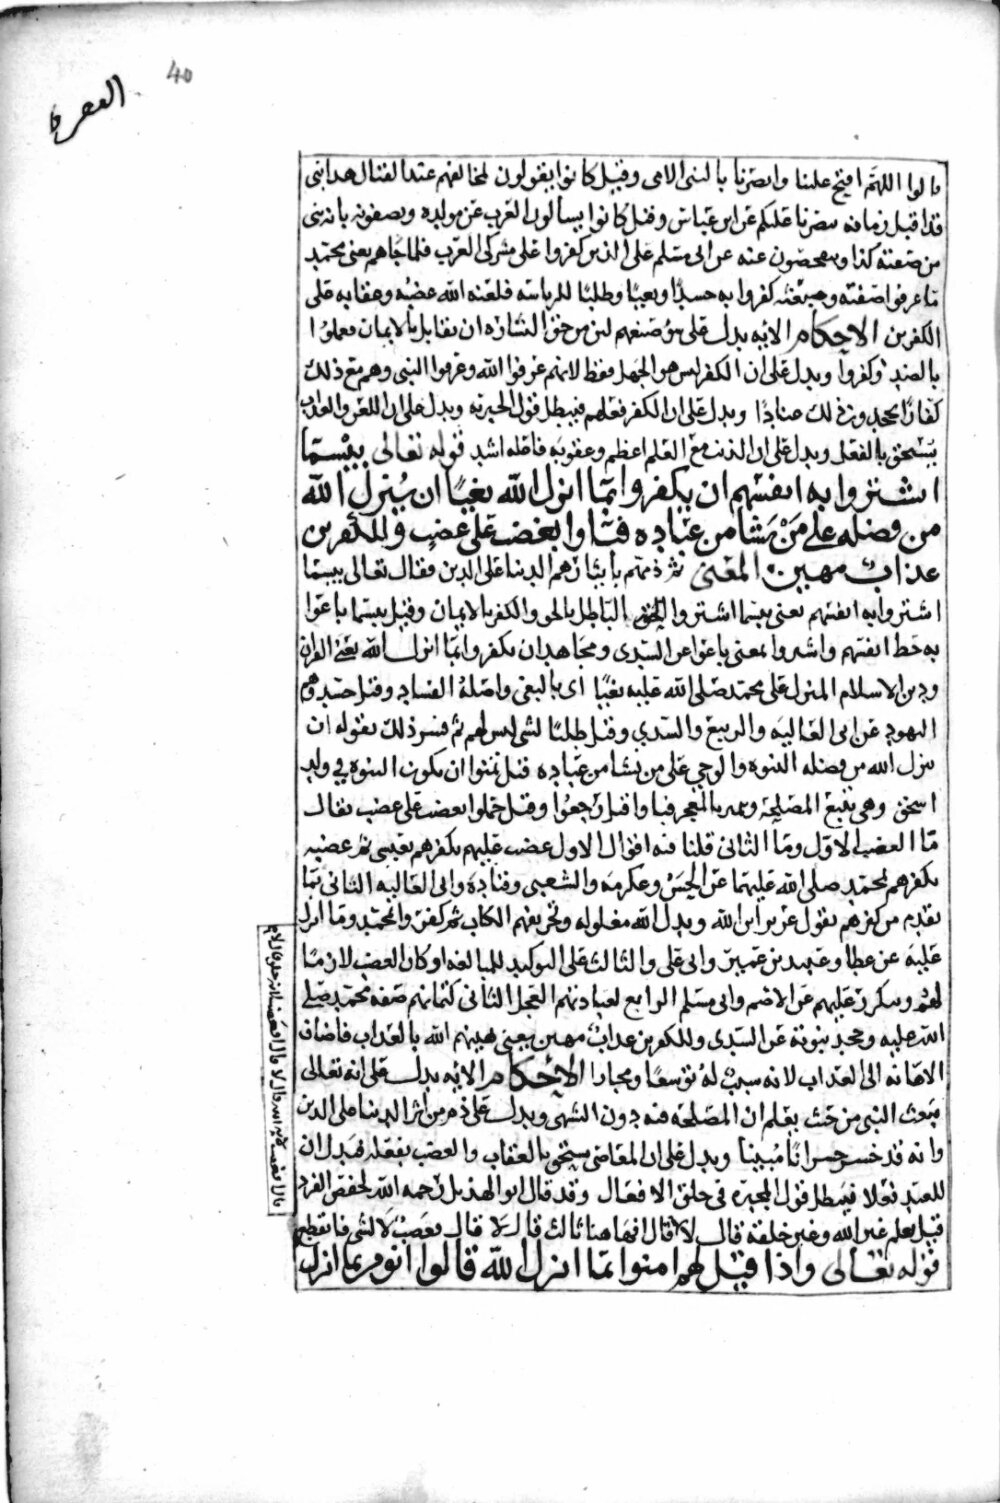 40
البقرة
قالوا اللهم افتح علينا وانصرنا بالنبي الامي وقيل كانوا يقولون لمخالفهم عند القتال هذا نبي
قد اقبل زمانه ينصرنا عليكم عن ابن عباس وقيل كانوا يسألون العرب عن مولده ويصفونه بانه نبي
من صفته كذا ويفحصون عنه عن ابي مسلم على الذين كفروا على مشركي العرب فلما جاهم يعني محمد
ما عرفوا صفته ومبعثه كفروا به حسدا وبغيا وطلبا للرياسة فلعنة الله غضبه وعقابه على
الكفرين الاحكام الايه يدل على سؤ صنيعهم لان من حق البشارة ان يقابل بالايمان فعملوا
بالضد وكفروا ويدل على ان الكفر ليس هو الجهل فقط لانهم عرفوا الله وعرفوا النبي وهم مع ذلك
كفارًا بجحدون ذلك عنادًا ويدل على ان الكفر فعلهم فيبطل قول المجبرة ويدل على ان اللعن والعذاب
يستحق بالفعل ويدل على ان الذنب مع العلم اعظم وعقوبة فاعله اشد قوله تعالى بيسما
اشتروا به انفسهم ان يكفروا بما انزل الله بغيًا ان ينزل الله
من فضله على من يشا من عباده فباوا بغضب على غضب وللكفرين
عذاب مهين المعنى ثم ذمهم بايثارهم الدنيا على الدين فقال تعالى بيسما
اشتروا به انفسهم يعني بيسما اشتروا الباطل بالحق والكفر بالايمان وقيل بيسما باعوا
به حظ انفسهم واشتروا بمعنى باعوا عن السدي ومجاهد ان يكفروا بما انزل الله يعني القران
ودين الاسلام المنزل على محمد صلى الله عليه بغيًا اي بالبغي واصله الفساد وقيل حسدا وهم
اليهود عن ابي العاليه والربيع والسدي وقيل طلبًا لشي ليس لهم ثم فسر ذلك بقوله ان
ينزل الله من فضله النبوة والوحي على من يشا من عباده قيل تمنوا ان يكون النبوة في ولد
اسحق وهي تتبع المصلحة وتميز بالمعجز فباوا قيل رجعوا وقيل حملوا بغضب على غضب يقال
ما الغضب الاول وما الثاني قلنا فيه اقوال الاول غضب عليهم بكفرهم بعيسى ثم غضبه
بكفرهم بمحمد صلى الله عليهما عن الحسن وعكرمة والشعبي وقتادة وابي العاليه الثاني بما
تقدم من كفرهم بقول عزير ابن الله ويد الله مغلولة وتحريفهم الكتاب ثم كفروا بمحمد وما انزل
عليه عن عطا وعبيد بن عمير وابي علي والثالث على التوكيد للمبالغه اذ كان الغضب لازمًا
لهم ويتكرر عليهم عن الاصم وابي مسلم الرابع لعبادتهم العجل الثاني كتمانهم صفة محمد صلى
الله عليه وجحد نبوته عن السدي وللكفرين عذاب مهين يعني يهينهم الله بالعذاب فاضاف
الاهانه الى العذاب لانه سبب له توسعا ومجازا الاحكام الايه يدل على انه تعالى
يبعث النبي من حيث يعلم ان المصلحة فيه دون التشهي ويدل على ذم من اثر الدنيا على الدين
وانه قد خسر خسرانًا مبينا ويدل على ان العاصي يستحق بالعقاب والغضب بفعله فيدل ان
للعبد فعلا فيبطل قول المجبرة في خلق الافعال وقد قال ابو الهذيل رحمه الله لحفص الفرد
قيل يعلم غير الله وغير خلقه قال لا قال افهاهنا ثالث قال لا قال فغضب لا لشي فانقطع
قوله تعالى واذا قيل لهم امنوا بما انزل الله قالوا انومن بما انزل